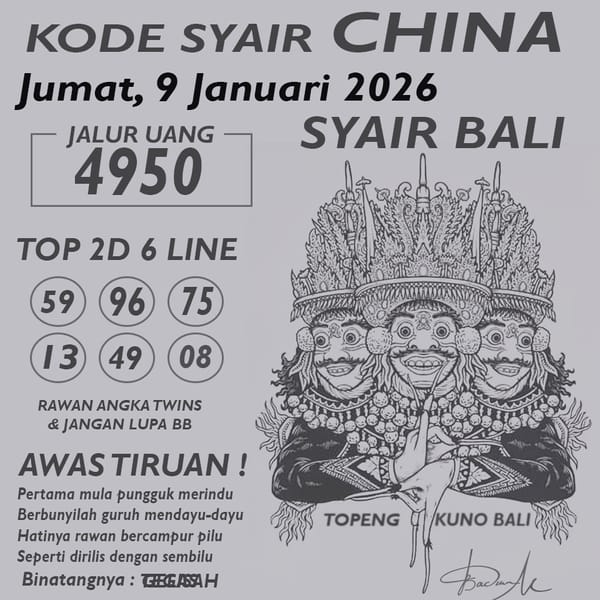 KODE SYAIR CHINA
Jumat, 9 Januari 2026
SYAIR BALI
JALUR UANG
4950
TOP 2D 6 LINE
59 96 75
13 49 08
RAWAN ANGKA TWINS
& JANGAN LUPA BB
AWAS TIRUAN !
Pertama mula pungguk merindu
Berbunyilah guruh mendayu-dayu
Hatinya rawan bercampur pilu
Seperti dirilis dengan sembilu
Binatangnya :
TOPENG KUNO BALI